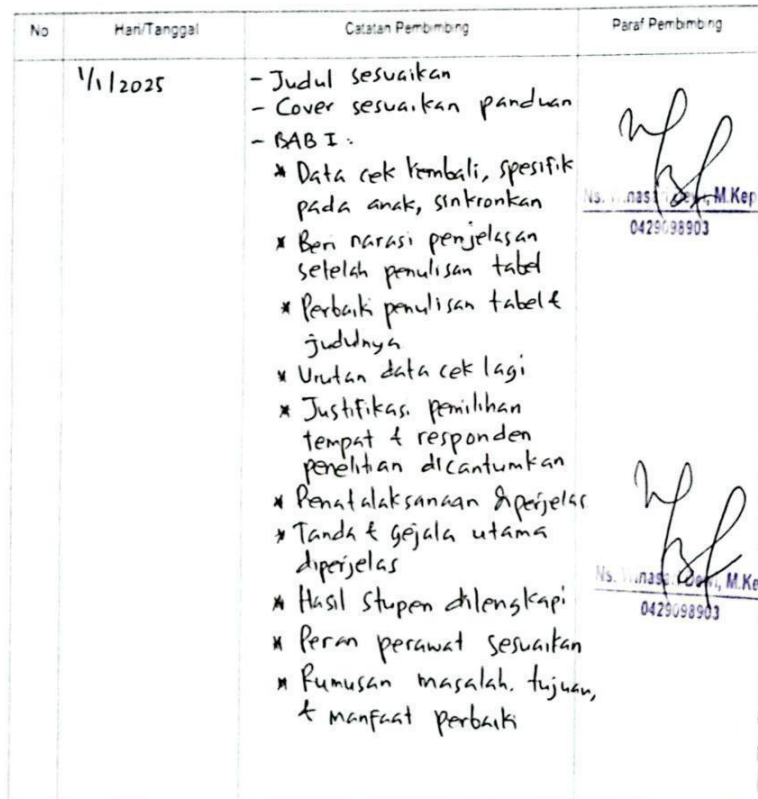 No Hari/Tanggal Catatan Pembimbing Paraf Pembimbing
1/1/2025
- Judul sesuaikan
- Cover sesuaikan panduan
- BAB I :
* Data cek kembali, spesifik
pada anak, sinkronkan
* Beri narasi penjelasan
setelah penulisan tabel
* Perbaiki penulisan tabel &
judulnya
* Urutan data cek lagi
* Justifikasi pemilihan
tempat & responden
penelitian dicantumkan
* Penatalaksanaan diperjelas
* Tanda & gejala utama
diperjelas
* Hasil stupen dilengkapi
* Peran perawat sesuaikan
* Rumusan masalah, tujuan,
& manfaat perbaiki
Ns. Dewi, M.Kep
0429098903
Ns. Dewi, M.Ke
0429098903